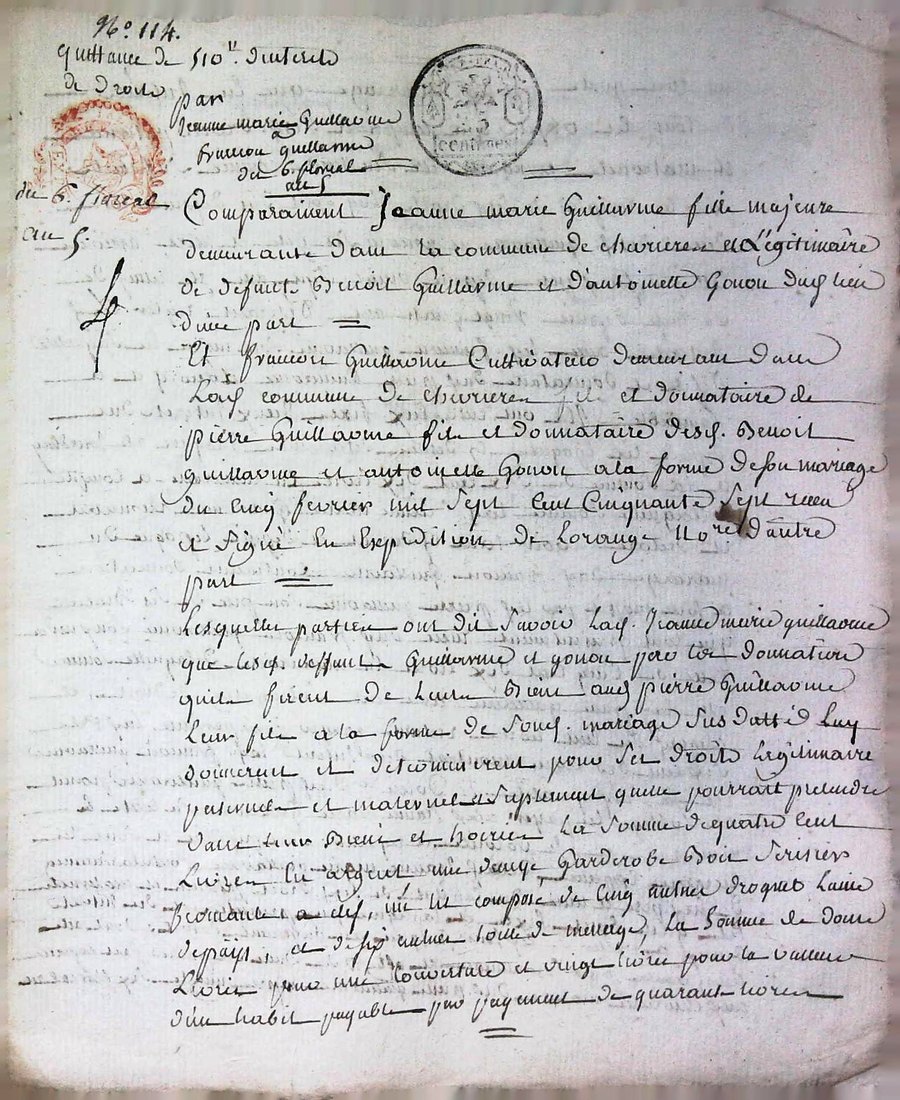 N.o 114.
quittance de 510ᵗᵗ. d'interets
de droits
par
Jeanne marie Guillaume
a
francois guillaume
du 6. floreal
an 5
25
centimes
du 6. floreal
an 5
Comparaissent Jeanne marie Guillaume fille majeure
demeurante dans la commune de chevrieres et Légitimaire
de defunts Benoit Guillaume et d'antoinette Gonon dud. lieu
d'une part
Et francois Guillaume Cultivateur demeurant dans
Lad. commune de chevrieres fils et donnataire de
pierre Guillaume fils et donnataire desd. Benoit
Guillaume et antoinette Gonon a la forme de son mariage
du cinq fevrier mil sept cent cinquante sept recu
et signé En Expedition de Lorange no.re d'autre
part
Lesquelles parties ont dit savoir Lad. Jeanne marie guillaume
que lesd. deffunts Guillaume et gonon par la donnation
quils firent de leurs Biens aud. pierre Guillaume
leur fils a la forme de sond. mariage sus datté Luy
donnerent et pour ses droits Légitimaire
paternels et maternels et suplement quelle pourrait pretendre
dans leurs Biens et hoiries La somme de quatre cent
Livres En argent une garderobe Bois serisier
fermante a clef, un lit composé de cinq aulnes droguet laine
de pays, et de six aulnes toile de mesnage, La somme de douze
Livres pour une couverture et vingt livres pour la valleur
d'un habit payable par payement de quarante livres